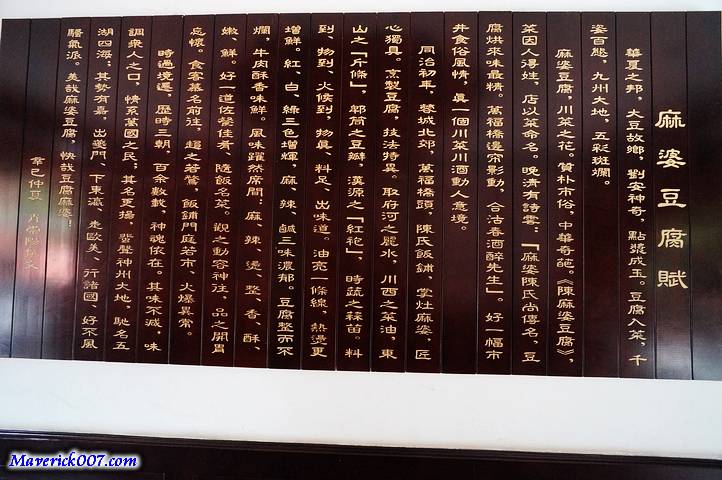 麻婆豆腐賦
華夏之邦，大豆故鄉，劉安神奇，點漿成玉。豆腐入菜，千
姿百態，九州大地，五彩斑斕。
麻婆豆腐，川菜之花。質朴市俗，中華奇葩。《陳麻婆豆腐》，
菜因人得姓，店以菜命名。晚清有詩雲：「麻婆陳氏尚傳名，豆
腐烘來味最精。萬福橋邊帘影動，合沽春酒醉先生」。好一幅市
井食俗風情，真一個川菜川酒動人意境。
同治初年，蓉城北郊，萬福橋頭，陳氏飯鋪，掌灶麻婆，匠
心獨具。烹製豆腐，技法特異。取府河之麗水，川西之菜油，東
山之「二斤條」，郫筒之豆瓣，漢源之「紅袍」，時蔬之蒜苗。料
到、物到、火候到，物真、料足、出味道。油亮一條線，熱燙更
增鮮。紅、白、綠三色增輝，麻、辣、鹹三味濃郁。豆腐整而不
爛，牛肉酥香味鮮。風味躍然席間：麻、辣、燙、整、香、酥、
嫩、鮮。好一道佐餐佳肴、隨飯名菜。觀之動容神往，品之開胃
忘懷。食客慕名前往，趨之若鶩，飯鋪門庭若市，火爆異常。
時過境遷，歷時三朝，百余數載，神魂依在。其味不減，味
調衆人之口，情系萬國之民；其名更揚，蜚聲神州大地，馳名五
湖四海；其勢有嘉，出夔門、下東瀛、走歐美、行諸國，好不風
騷氣派。美哉麻婆豆腐，快哉豆腐麻婆！
辛巳仲夏 肖崇陽撰文
Maverick007.com